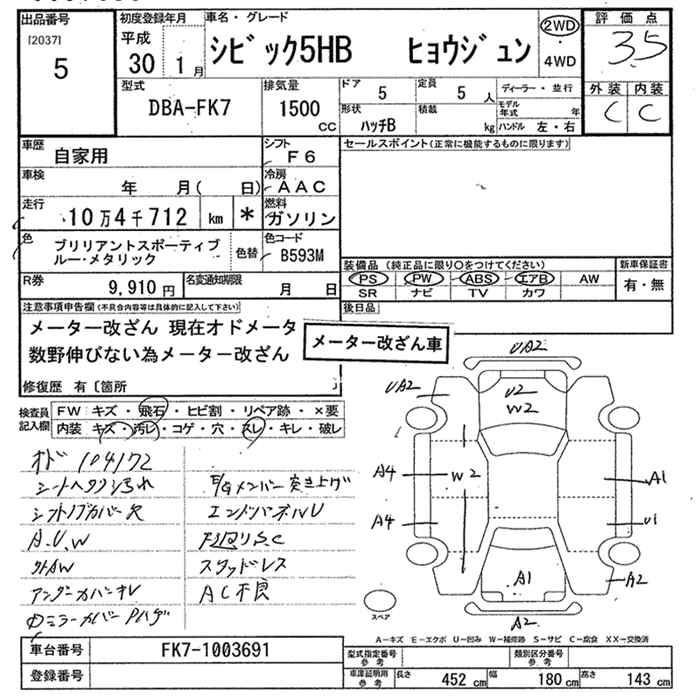 出品番号
[2037]
5
初度登録年月
平成
30 1月
車名・グレード
シビック5HB ヒョウジュン
2WD
4WD
評価点
3.5
型式
DBA-FK7
排気量
1500
CC
ドア
5
定員
5人
形状
ハッチB
積載
kg
ディーラー・並行
モデル年式 年
ハンドル 左・右
外装 内装
C C
車歴
自家用
シフト
F6
車検
年 月( 日)
冷房
AAC
走行
10万4千712 km *
燃料
ガソリン
色
ブリリアントスポーティブ
ルー・メタリック
色替
色コード
B593M
R券
9,910円
名変通知期限
月 日
セールスポイント(正常に機能するものに限ります)
装備品 (純正品に限り○をつけてください)
PS PW ABS エアB AW
SR ナビ TV カワ
新車保証書
有・無
後日品
注意事項申告欄(不具合内容等は具体的に記入して下さい)
メーター改ざん 現在オドメータ
数野伸びない為メーター改ざん
メーター改ざん車
修復歴 有〔箇所 〕
検査員
記入欄
FW キズ・飛石・ヒビ割・リペア跡・×要
内装 キズ・汚レ・コゲ・穴・スレ・キレ・破レ
オド 104172
シートヘタリ汚れ
シフトノブカバー欠
A.U.W
外AW
アンダーカバーオレ
ミラーカバーPハゲ
E/Gメンバー突き上げ
エンドパネルU
スタッドレス
AC不良
UA2
UA2
U2
W2
A4
W2
A1
A4
U1
A1
A2
A2
スペア
A−キズ E−エクボ U−凹み W−補修跡 S−サビ C−腐食 XX−交換済
車台番号
FK7-1003691
登録番号
型式指定番号
参考
類別区分番号
参考
車庫証明用
参考
長さ 452 cm
幅 180 cm
高さ 143 cm